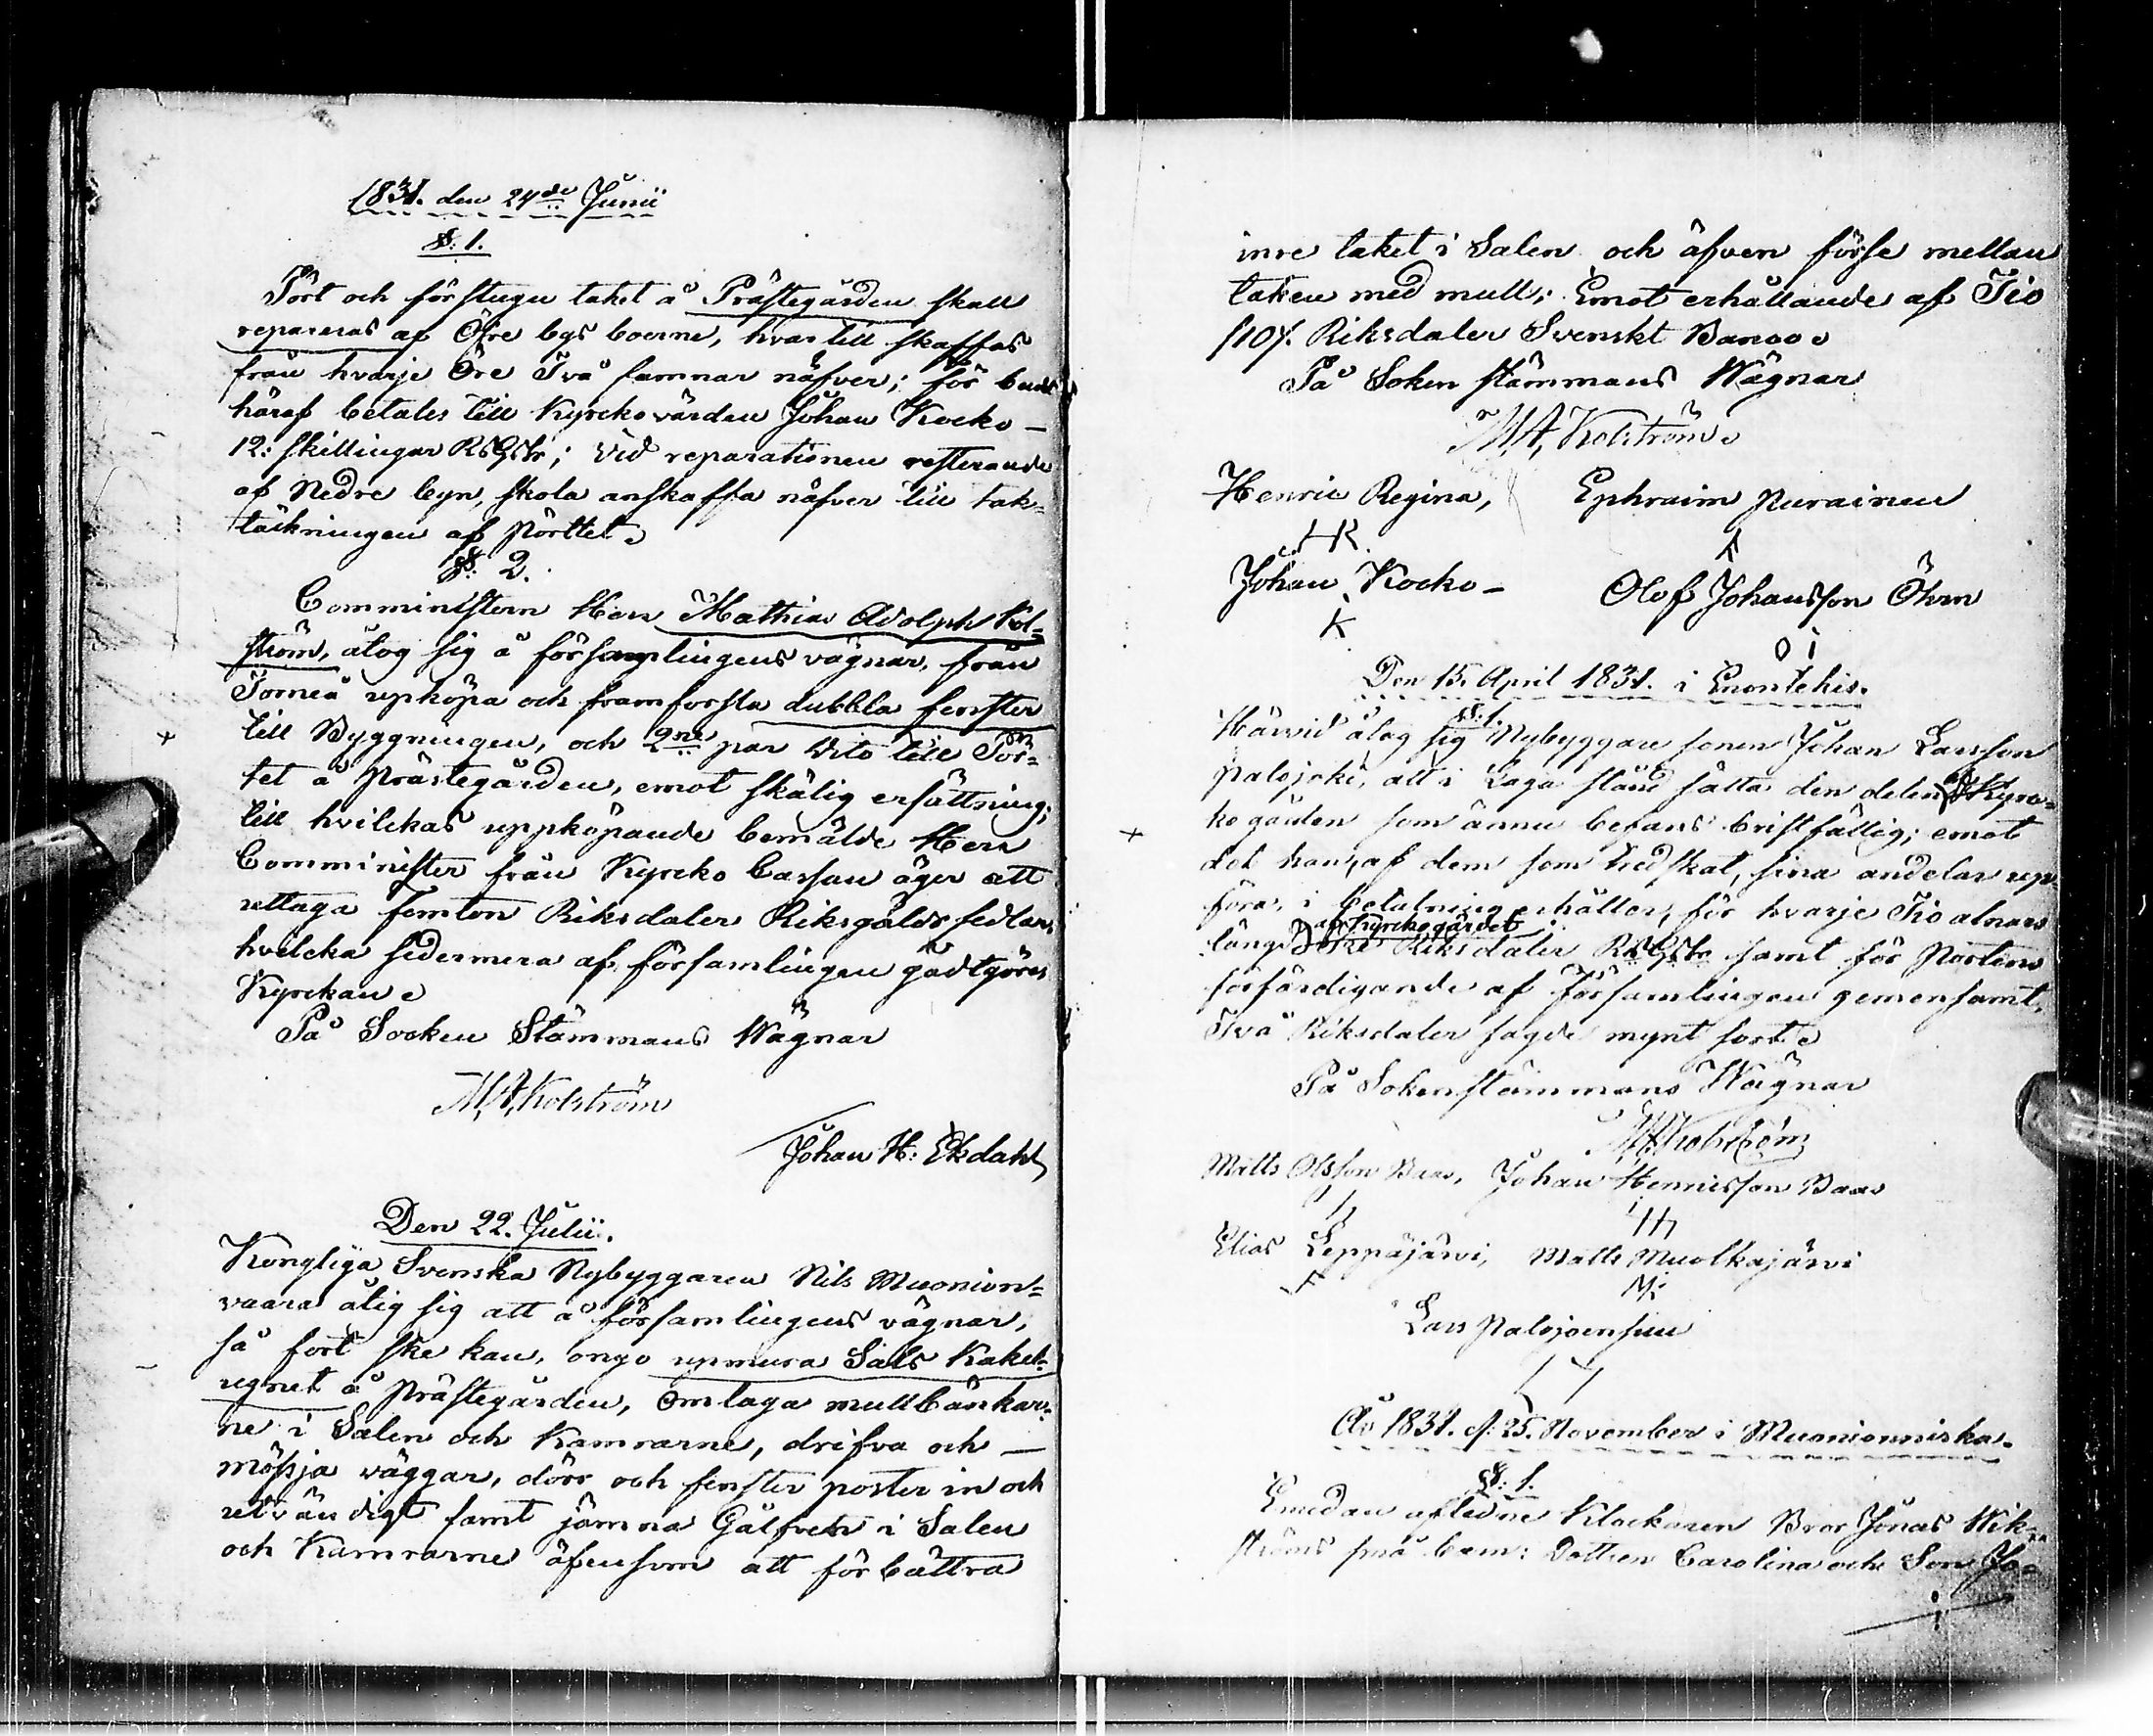 1831. den 24de Junii
§: 1.
Pört och förstugu taket å Prästegården skall
repareras af Öfre bys boerne, hvartill skaffas
från hvarje Öre Två famnar näfver; för
häraf betales till Kyrckovärden Johan Kocko –
12: skillingar RsGds; Vid reparationen resterande
af Nedre byn, skola anskaffa näfver till tak-
täckningen af pörttet.
§: 2.
Comministern Herr Mathias Adolph Kol-
ström, åtog sig å församplingens vägnar, från
Torneå upköpa och framforsla dubbla fenster
till Byggningen, och 2ne par dito till Pör-
tet å prästegården, emot skälig ersättning;
till hvilckas uppköpande bemälde Herr
Comminister från Kyrcko Cassan äger att
uttaga femton Riksdaler Riksgälds sedlar,
hvilcka sedermera af församlingen godtgöres
Kyrckan.
På Socken Stämmans Wägnar
M. A. Kolström
Johan H: Ekdahl
Den 22. Julii.
Kongliga Svenska Nybyggaren Nils Muonion-
vaara åtog sig att å församlingens vägnar,
så fort ske kan, ongo upmura Sals Kakel-
ugnet å prästegården, omlaga mullbänkar-
ne i Salen och Kamrarne, drifva och –
mössja väggar, dörr och fenster poster in och
utvändigt samt jämna Gålfvet i Salen
och Kamrarne äfensom att förbättra
inre taket i Salen och äfven förse mellan
taken med mull; Emot erhållande af Tio
/10/. Riksdaler Svenskt Banco.
På Soken stämmans Wägnar
M. A. Kolström.
Henric Regina, Ephraim purainen
HR.
Johan Kocko – Olof Johansson Öhrn
K
O i
Den 15. April 1831. i Enontekis.
§: 1.
Härvid åtog sig Nybyggare sonen Johan Larsson
palojoki, att i Laga stånd sätta den delen af Kyrc-
ko gården som ännu befans bristfällig; emot
det han, af dem som tredskat, sina andelar up-
föra, i betalning erhåller, för hvarje Tio alnars
längd af Kyrckogärdet Riksdaler RsGds samt för portens
förfärdigande af församlingen gemensamt.
Två Riksdaler sagde mynt sort.
På Sokenstämmans Wägnar
M. A. Kolström
Matts Olsson Baas, Johan Henricsson Baas
Elias Leppäjärvi, Matts Muolkajärvi
Lars palojoensuu
År 1831. d: 25. November i Muonionniska.
§: 1.
Emedan aflidne Klockaren Bror Jonas Wik-
ströms små barn: Dottren Carolina och Son Jo-